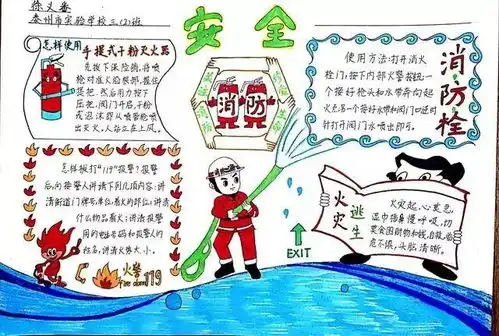 泰州市实验学校三(2)班
安全
怎样使用
手提式干粉灭火器
先拔下保险销,将喷
咀对准火焰根部,握住
提把,然后用力按下
压把,阀门开启,干粉
或泡沫即从喷管喷
出灭火,人站立在上风。
消防
使用方法:打开消火
栓门,按下内部火警按钮
一个接好枪头和水带奔向起
火点另一个接好水带和阀门口逆时
针打开阀门水喷出即可。
消防栓
怎样拨打"119"报警?报警
后,向接警人讲清下列几项内容:讲
清街道门牌号单位,着火的部位;讲清
什么物品着火;讲清报警
用的电话号码和报警人的
姓名;讲清火势大小。
火警119
EXIT
火灾
逃生
火灾起,心莫急,
湿巾捂鼻慢呼吸,切
莫贪图财物和钱,自救
危不惧,头脑清晰。